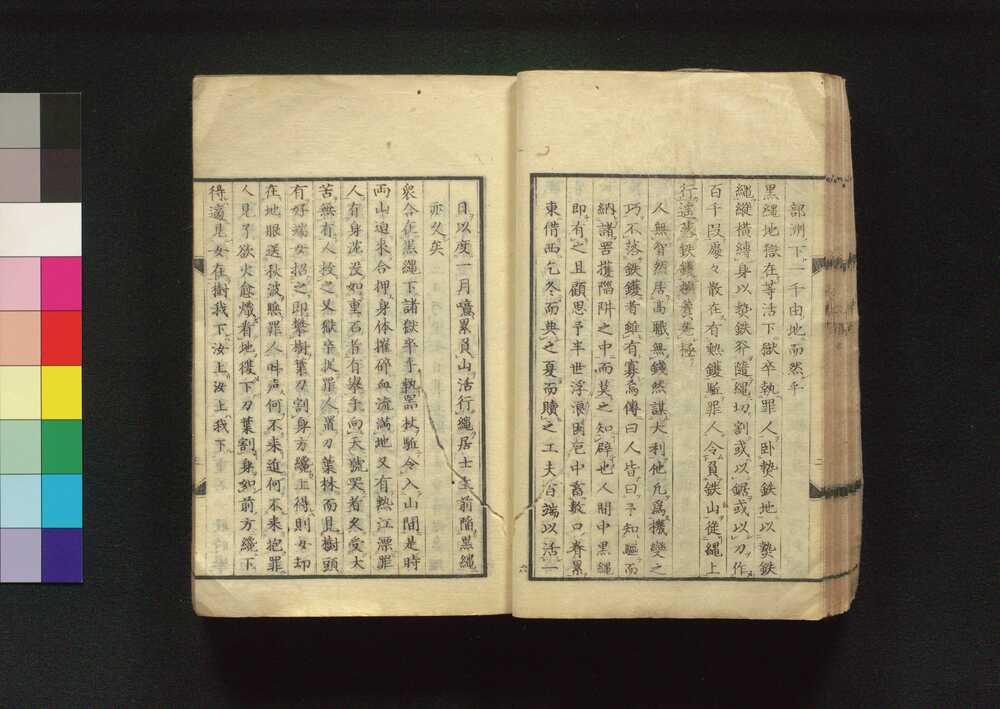 部洲下一千由地而然乎
黒縄地獄在等活下獄卒執罪人卧熱鉄地以熱鉄
縄縦横縛身以熱鉄斧随縄切割或以鋸或以刀作
百千段處々散在有熱鑊駈罪人令員鉄山従縄上
行遥落鉄鑊摧煮無極
人無智然居高職無錢然謀大利他凡為機變之
巧不落鉄鑊者雖有寡焉傳曰人皆曰予知驅而
納諸罟擭陥阱之中而莫之知辟也人間中黒縄
即有之且顧思予半世浮浪困厄中畜数口眷累
東借西乞冬而典之夏而贖之工夫百端以活一
日以度一月噫累員山活行縄居士生前陥黒縄
亦久矣
衆合在黒縄下諸獄卒手執器杖駈令入山間是時
両山迫来合押身体摧碎血流満地又有熱江漂罪
人有身沈没如重石者有挙手向天號哭者久受大
苦無有人救之又獄卒捉罪人置刀葉林而見樹頭
有好端女招之即攀樹葉刀割身方纔上得則女却
在地眼送秋波瞧罪人呌声何不来迫何不来抱罪
人見了欲火愈熾有地復下刀葉割身如前方纔下
得適見女在樹我下汝上汝上我下